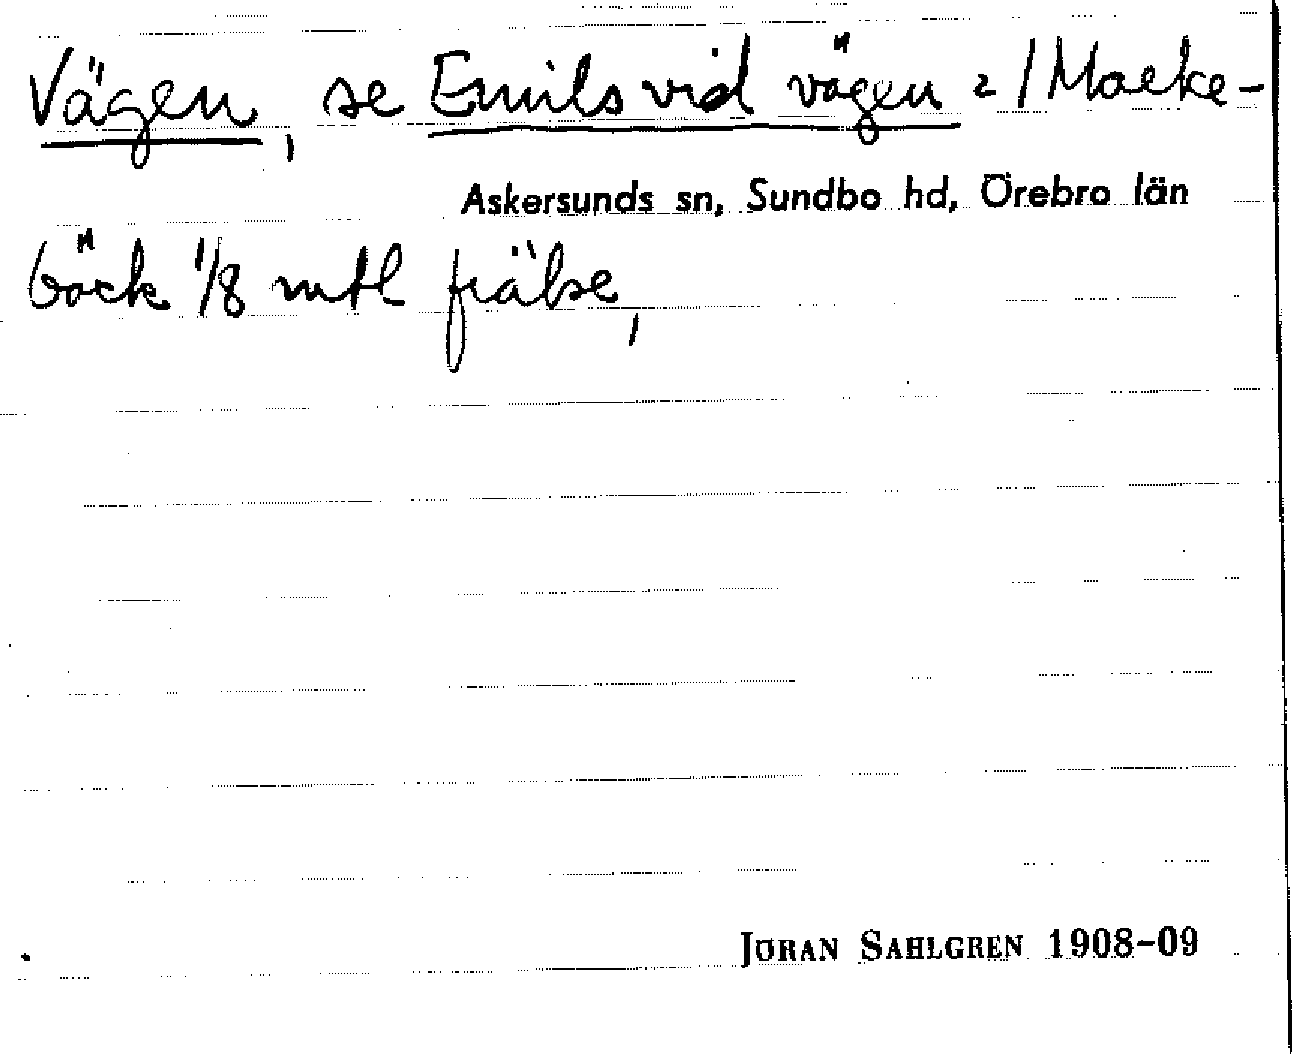 Vägen, se Emils vid vägen 2 / Marke-
Askersunds sn, Sundbo hd, Örebro län
bäck 1/8 mtl frälse,
JÖRAN SAHLGREN 1908-09